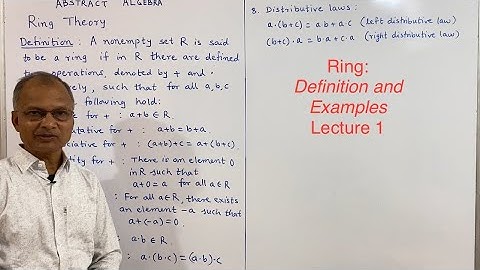 ABSTRACT ALGEBRA
Ring Theory
Definition : A nonempty set R is said
to be a ring if in R there are defined
operations, denoted by + and ·
such that for all a,b,c
following hold:
for + : a+b ∈ R.
for + : a+b = b+a
for + : (a+b)+c = a+(b+c).
for + : There is an element 0
in R such that
a+0 = a for all a∈R
: For all a∈R, there exists
an element -a such that
a+(-a) = 0.
: a·b ∈ R.
: a·(b·c) = (a·b)·c
8. Distributive laws :
a·(b+c) = a·b + a·c (left distributive law)
(b+c)·a = b·a + c·a (right distributive law)
Ring:
Definition and
Examples
Lecture 1